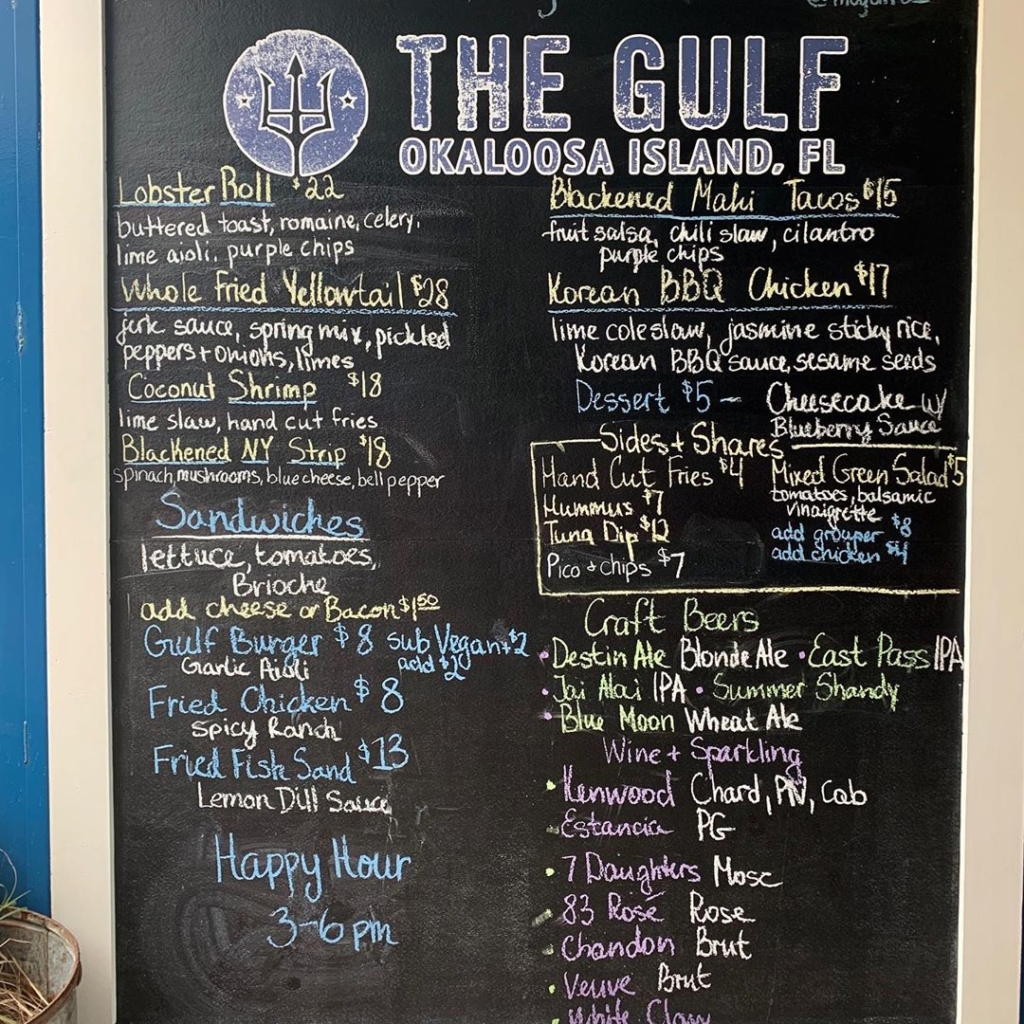 THE GULF
OKALOOSA ISLAND, FL
Lobster Roll $22
buttered toast, romaine, celery,
lime aioli, purple chips
Whole Fried Yellowtail $28
jerk sauce, spring mix, pickled
peppers + onions, limes
Coconut Shrimp $18
lime slaw, hand cut fries
Blackened NY Strip $18
spinach, mushrooms, blue cheese, bell pepper
Sandwiches
lettuce, tomatoes,
Brioche
add cheese or Bacon $1.50
Gulf Burger $8 sub Vegan +$2
Garlic Aioli add $2
Fried Chicken $8
Spicy Ranch
Fried Fish Sand $13
Lemon Dill Sauce
Happy Hour
3-6 pm
Blackened Mahi Tacos $15
fruit salsa, chili slaw, cilantro
purple chips
Korean BBQ Chicken $17
lime coleslaw, jasmine sticky rice,
Korean BBQ sauce, sesame seeds
Dessert $5 - Cheesecake w/
Blueberry Sauce
Sides + Shares
Hand Cut Fries $4
Hummus $7
Tuna Dip $12
Pico + chips $7
Mixed Green Salad $5
tomatoes, balsamic
vinaigrette
add grouper $8
add chicken $4
Craft Beers
• Destin Ale Blonde Ale • East Pass IPA
• Jai Alai IPA • Summer Shandy
• Blue Moon Wheat Ale
Wine + Sparkling
• Kenwood Chard, PN, Cab
• Estancia PG
• 7 Daughters Mosc
• 83 Rosé Rose
• Chandon Brut
• Veuve Brut
• White Claw